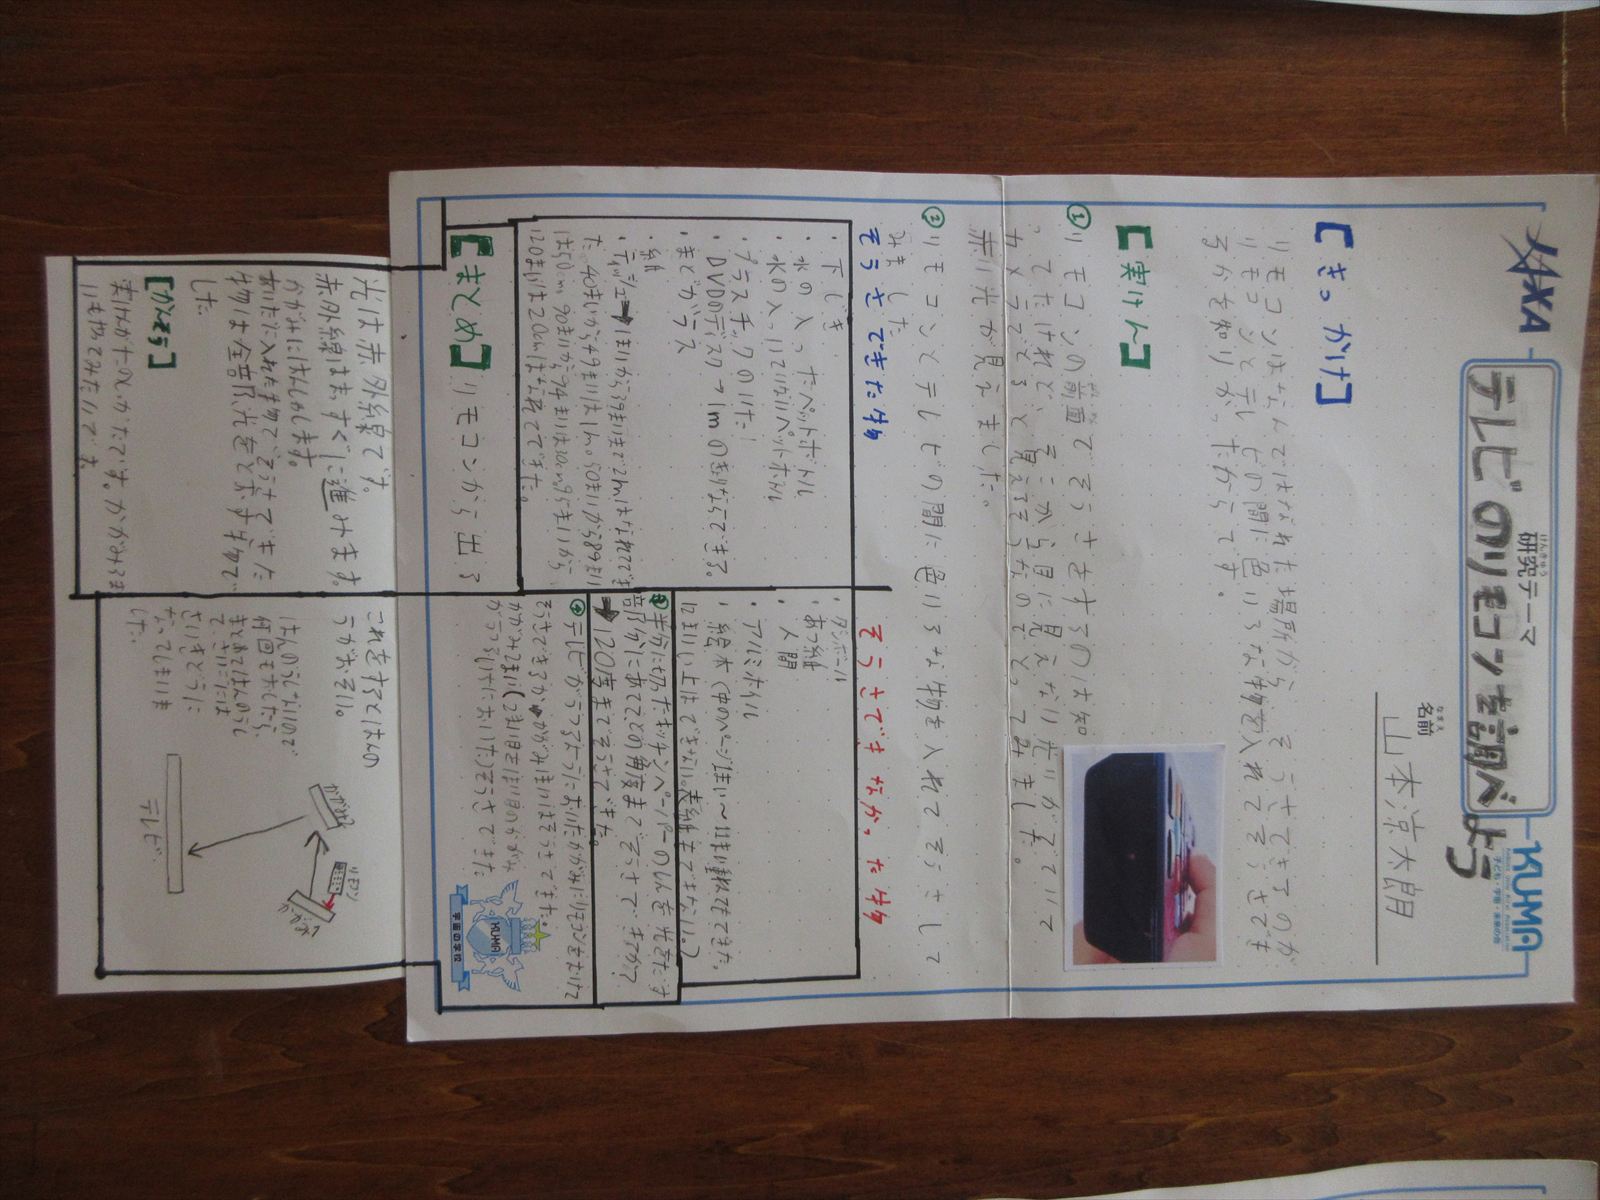 JAXA
研究テーマ
けんきゅう
テレビのリモコンを調べよう
KUMA
子ども・宇宙・未来の会
名前
なまえ
山本涼太朗
【きっかけ】
リモコンはなんではなれた場所から、そうさできるのか
リモコンとテレビの間に色いろな物を入れてそうさでき
るかを知りたかったからです。
【実けん】
① リモコンの前面でそうさをするのは知
ってたけれど、そこから目に見えない光がでていて
カメラでとると見えそうなのでとってみました。
赤い光が見えました。
② リモコンとテレビの間に色いろな物を入れてそうさして
みました
そうさできた物
・下じき
・水の入ったペットボトル
・水の入っていないペットボトル
・プラスチックのいた
・DVDのディスク→1mのきょりならできる。
・まどガラス
・紙
・ティッシュ→1まいから39まいまで2mはなれてでき
た。40まいから49まいは1m。50まいから89まい
は50cm 90まいから
120まいは20cmはなれてできた。
そうさできなかった物
・ダンボール
・あつ紙
・人間
・アルミホイル
・絵本(中のページ1まい〜11まい重ねてもできた。
12まい以上はできない。表紙もできない。)
③ 半分に切ったキッチンペーパーのしんを光をだす
部分にあててどの角度までそうさできるか?
→120度までそうさできた。
④ テレビがうつるようにおいたかがみにリモコンをむけて
そうさできるか→かがみ1まいはそうさできた。
かがみ2まい(2まい目を1まい目のかがみ
がうつるいちにおいた)そうさできた
【まとめ】
リモコンから出る
光は赤外線です。
赤外線はまっすぐに進みます。
かがみにはんしゃします。
あいだに入れた物で、そうさできた
物は全部光をとおす物で
した
【かんそう】
実けんがたのしかったです。かがみ3ま
いもやってみたいです。
これをするとはんの
うがおそい。
はんのうしないので
何回もおしたら、
まとめてはんのうし
て、さいごには
さいきどうに
なってしまいま
した。
かがみ
リモコン
テレビ
KUMA
宇宙の学校